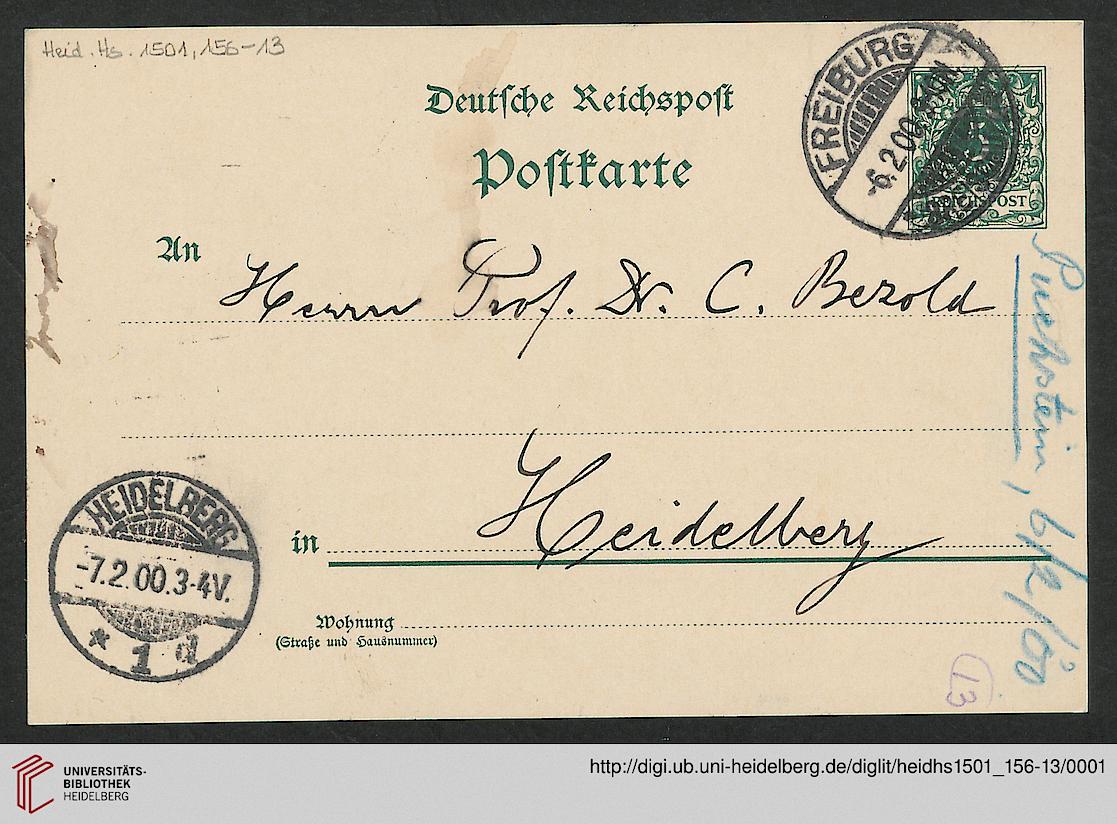 Heid. Hs. 1501, 156-13
Deutsche Reichspost
Postkarte
FREIBURG
-6.2.00.
REICHSPOST
An
Herrn Prof. Dr. C. Bezold
in Heidelberg
Wohnung
(Straße und Hausnummer)
HEIDELBERG
-7.2.00.3-4V.
* 1 d
Puchstein, 6/2/00
13
UNIVERSITÄTS-
BIBLIOTHEK
HEIDELBERG
http://digi.ub.uni-heidelberg.de/diglit/heidhs1501_156-13/0001